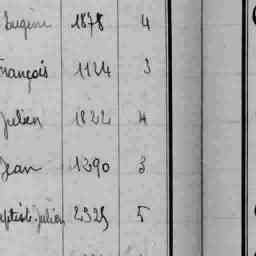 Eugène 1878 4
François 1124 3
Julien 1822 4
Jean 1290 3
aptiste Julien 2325 5